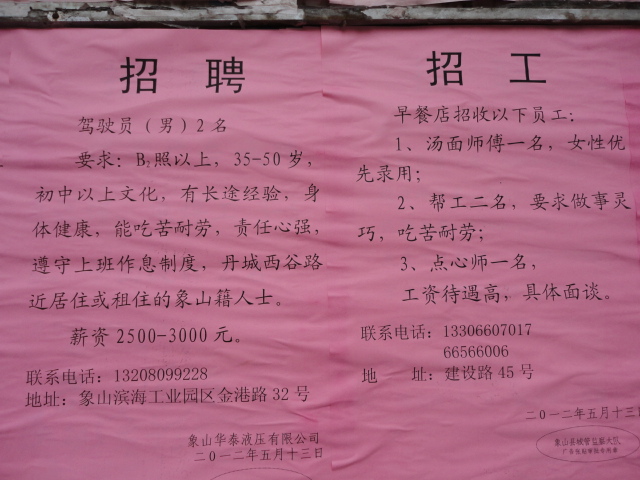 招聘
驾驶员(男)2名
要求:B2照以上,35-50岁,
初中以上文化,有长途经验,身
体健康,能吃苦耐劳,责任心强,
遵守上班作息制度,丹城西谷路
近居住或租住的象山籍人士。
薪资2500-3000元。
联系电话:13208099228
地址:象山滨海工业园区金港路32号
象山华泰液压有限公司
二○一二年五月十三日
招工
早餐店招收以下员工:
1、汤面师傅一名,女性优
先录用;
2、帮工二名,要求做事灵
巧,吃苦耐劳;
3、点心师一名,
工资待遇高,具体面谈。
联系电话:13306607017
66566006
地 址:建设路45号
二○一二年五月十三日
象山县城管监察大队